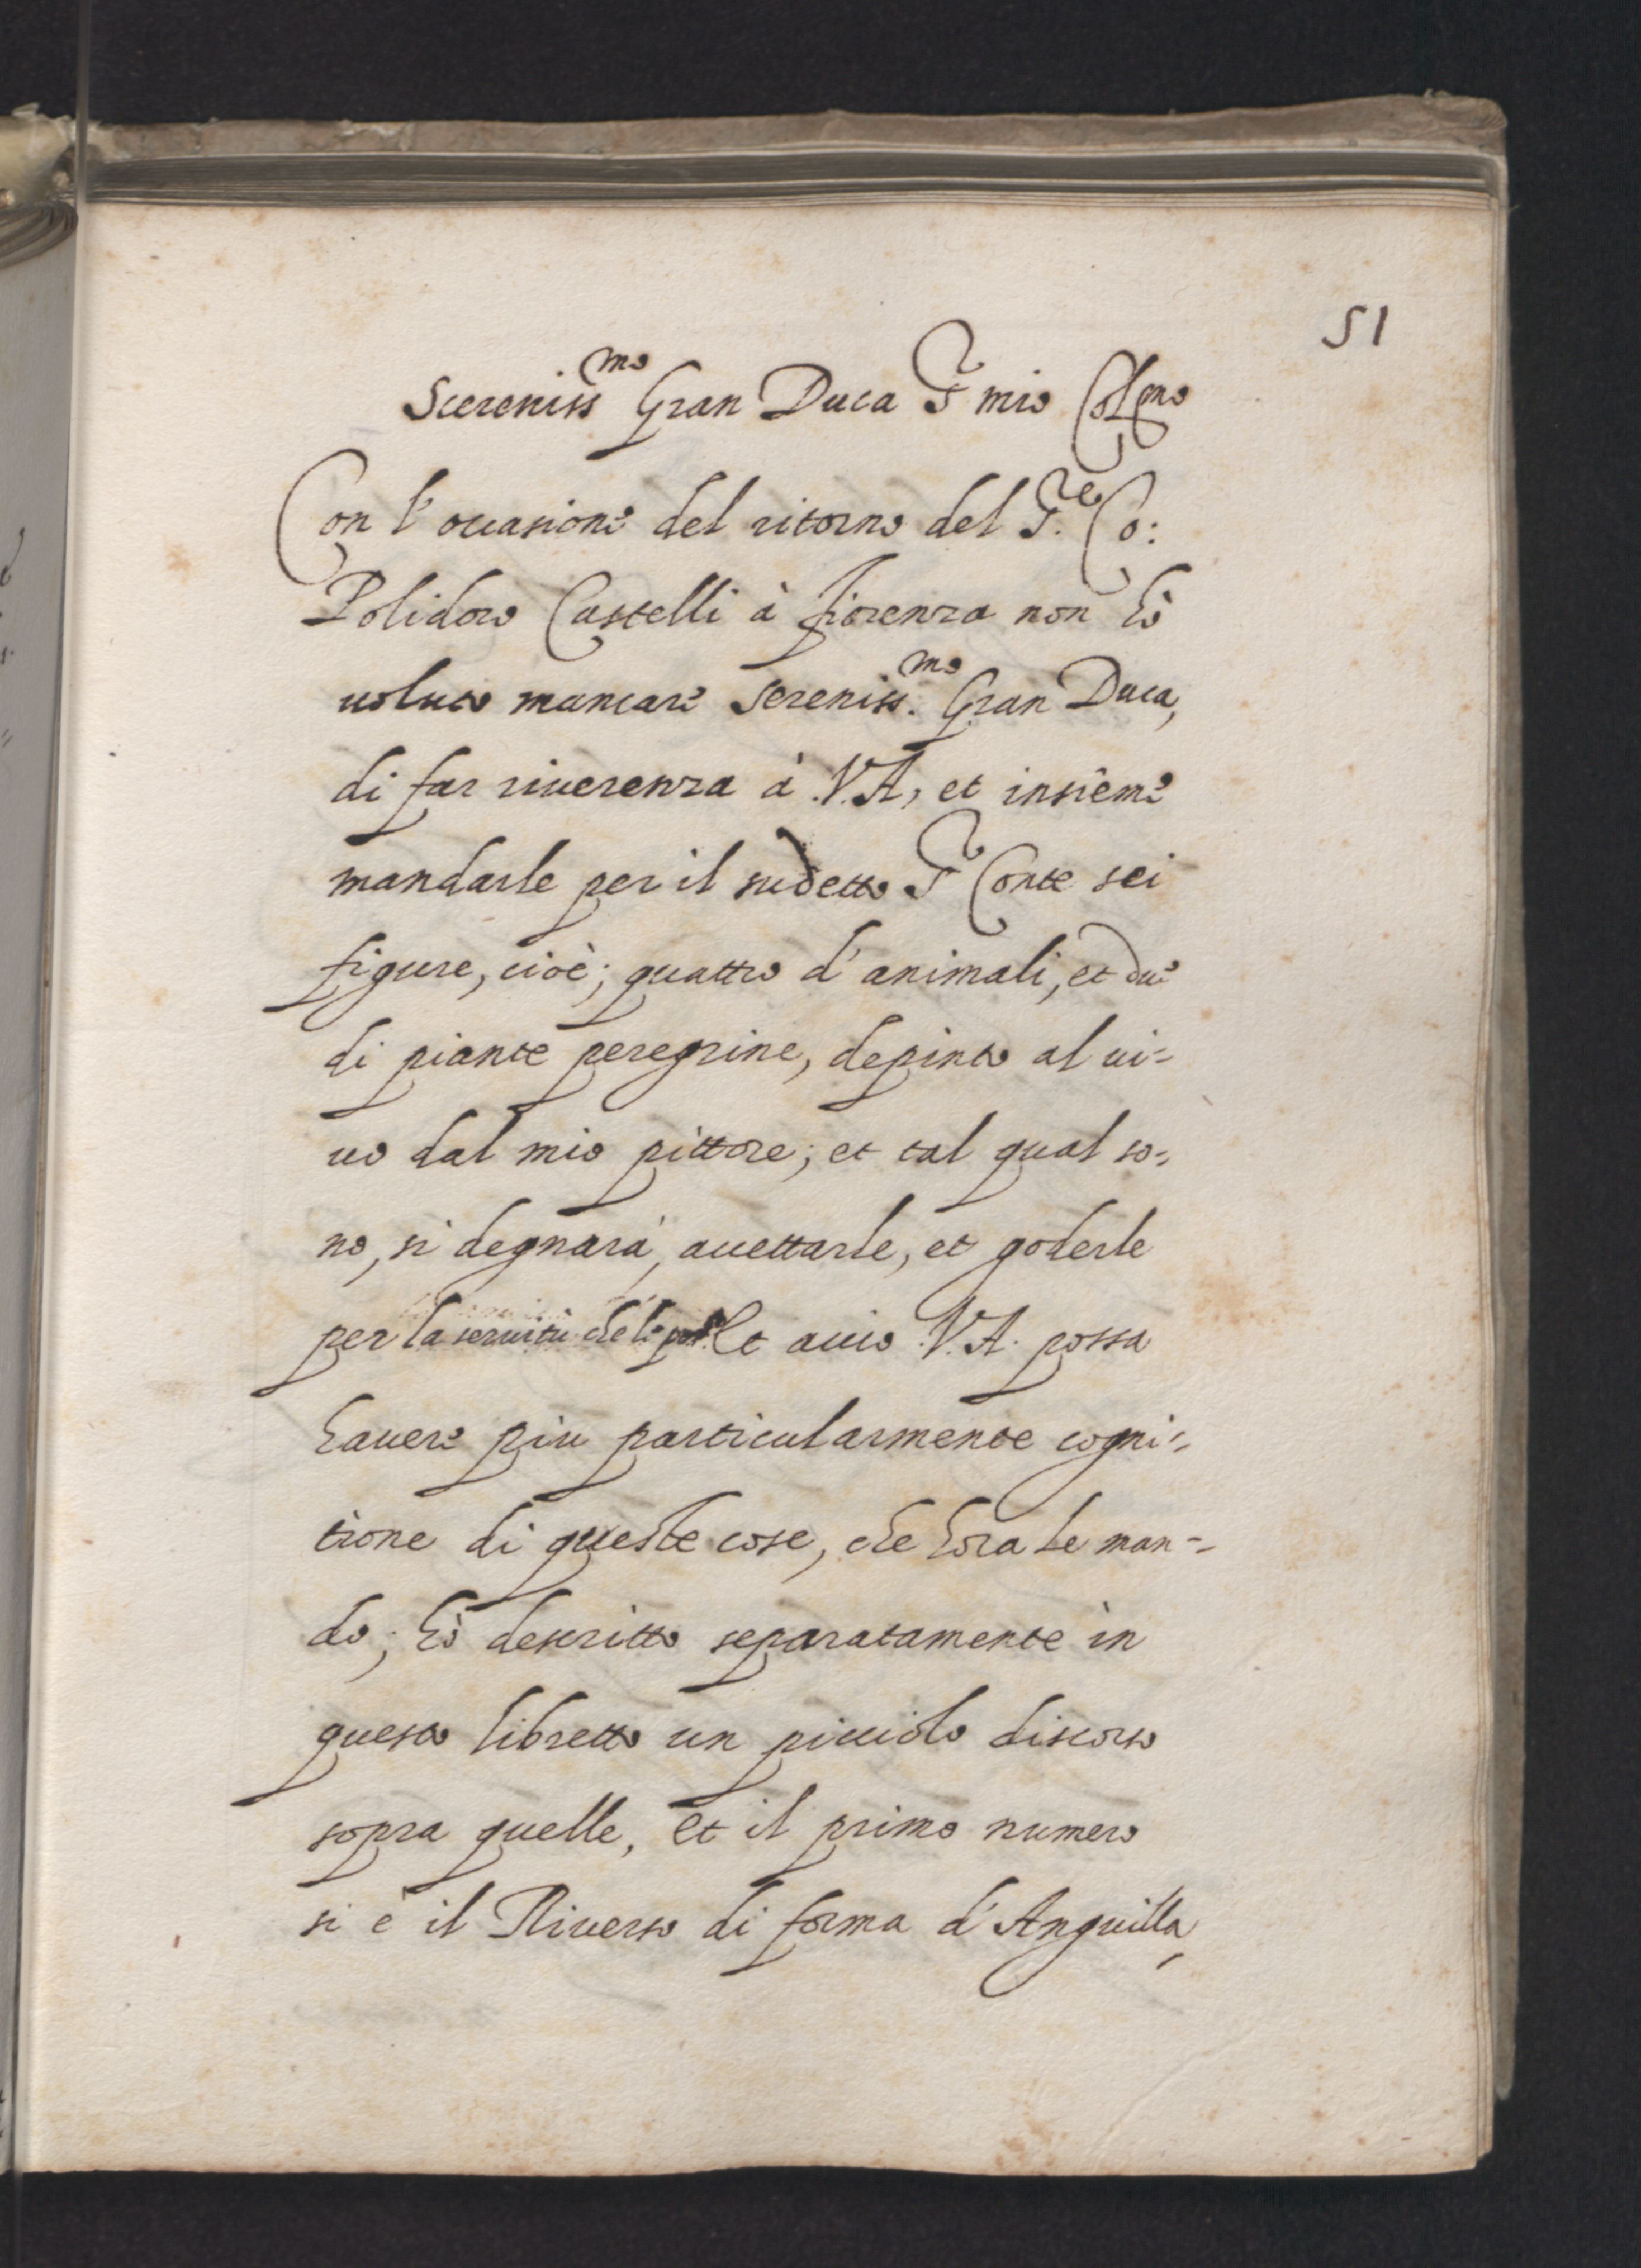 51
Scereniss.mo Gran Duca Sr mio Colmo
Con l'occasione del ritorno del Sr.e Co:
Polidoro Castelli à fiorenza non hò
uoluto mancare Sereniss.mo Gran Duca,
di far riuerenza à V.A, et insieme
mandarle per il sudetto Sr Conte sei
figure, cioè; quattro d'animali, et due
di piante peregrine, depinto al ui=
uo dal mio pittore; et tal qual so=
no, si degnarà, accettarle, et goderle
per la seruitù che le Et acciò V.A. possa
hauere piu particularmente cogni=
tione di queste cose, che hora Le man=
do; hò descritto separatamente in
questo libretto un picciolo discorso
sopra quelle, et il primo numero
si è il Riuerso di forma d'Anguilla,